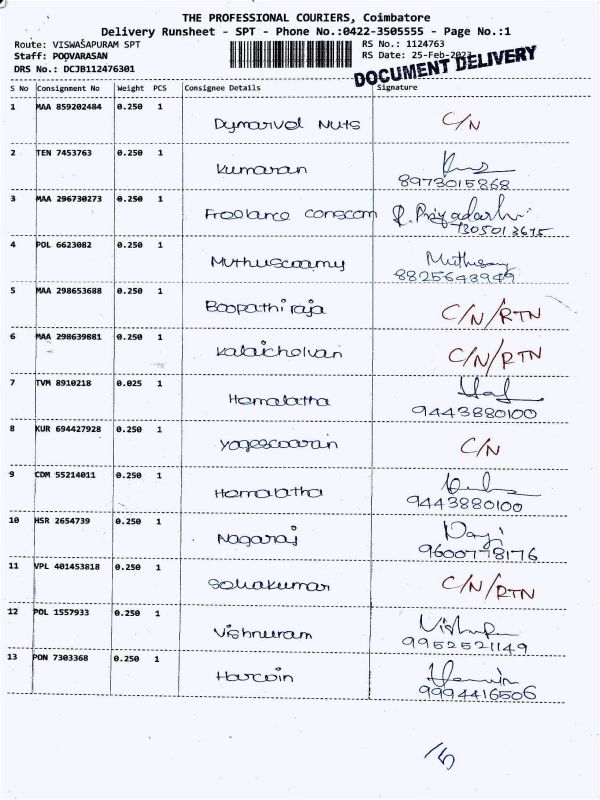 THE PROFESSIONAL COURIERS, Coimbatore
Delivery Runsheet - SPT - Phone No.:0422-3505555 - Page No.:1
Route: VISWASAPURAM SPT RS No.: 1124763
Staff: POOVARASAN RS Date: 25-Feb-2023
DRS No.: DCJB112476301 DOCUMENT DELIVERY
S No Consignment No Weight PCS Consignee Details Signature
1 MAA 859202484 0.250 1 Dymarvel Nuts C/N
2 TEN 7453763 0.250 1 Kumaran
8973015868
3 MAA 296730273 0.250 1 Freelance conscom R. Priyadarshi
4 POL 6623082 0.250 1 Muthuswamy Muthusamy
8825643949
5 MAA 298653688 0.250 1 Boopathi raja C/N/RTN
6 MAA 298639881 0.250 1 Kalaichelvan C/N/RTN
7 TVM 8910218 0.025 1 Hemalatha
9443880100
8 KUR 694427928 0.250 1 yogeswaran C/N
9 CDM 55214011 0.250 1 Hemalatha
9443880100
10 HSR 2654739 0.250 1 Nagaraj
9600778176
11 VPL 401453818 0.250 1 C/N/RTN
12 POL 1557933 0.250 1 Vishnuram
9952521149
13 PON 7303368 0.250 1 Harwin
9994416506